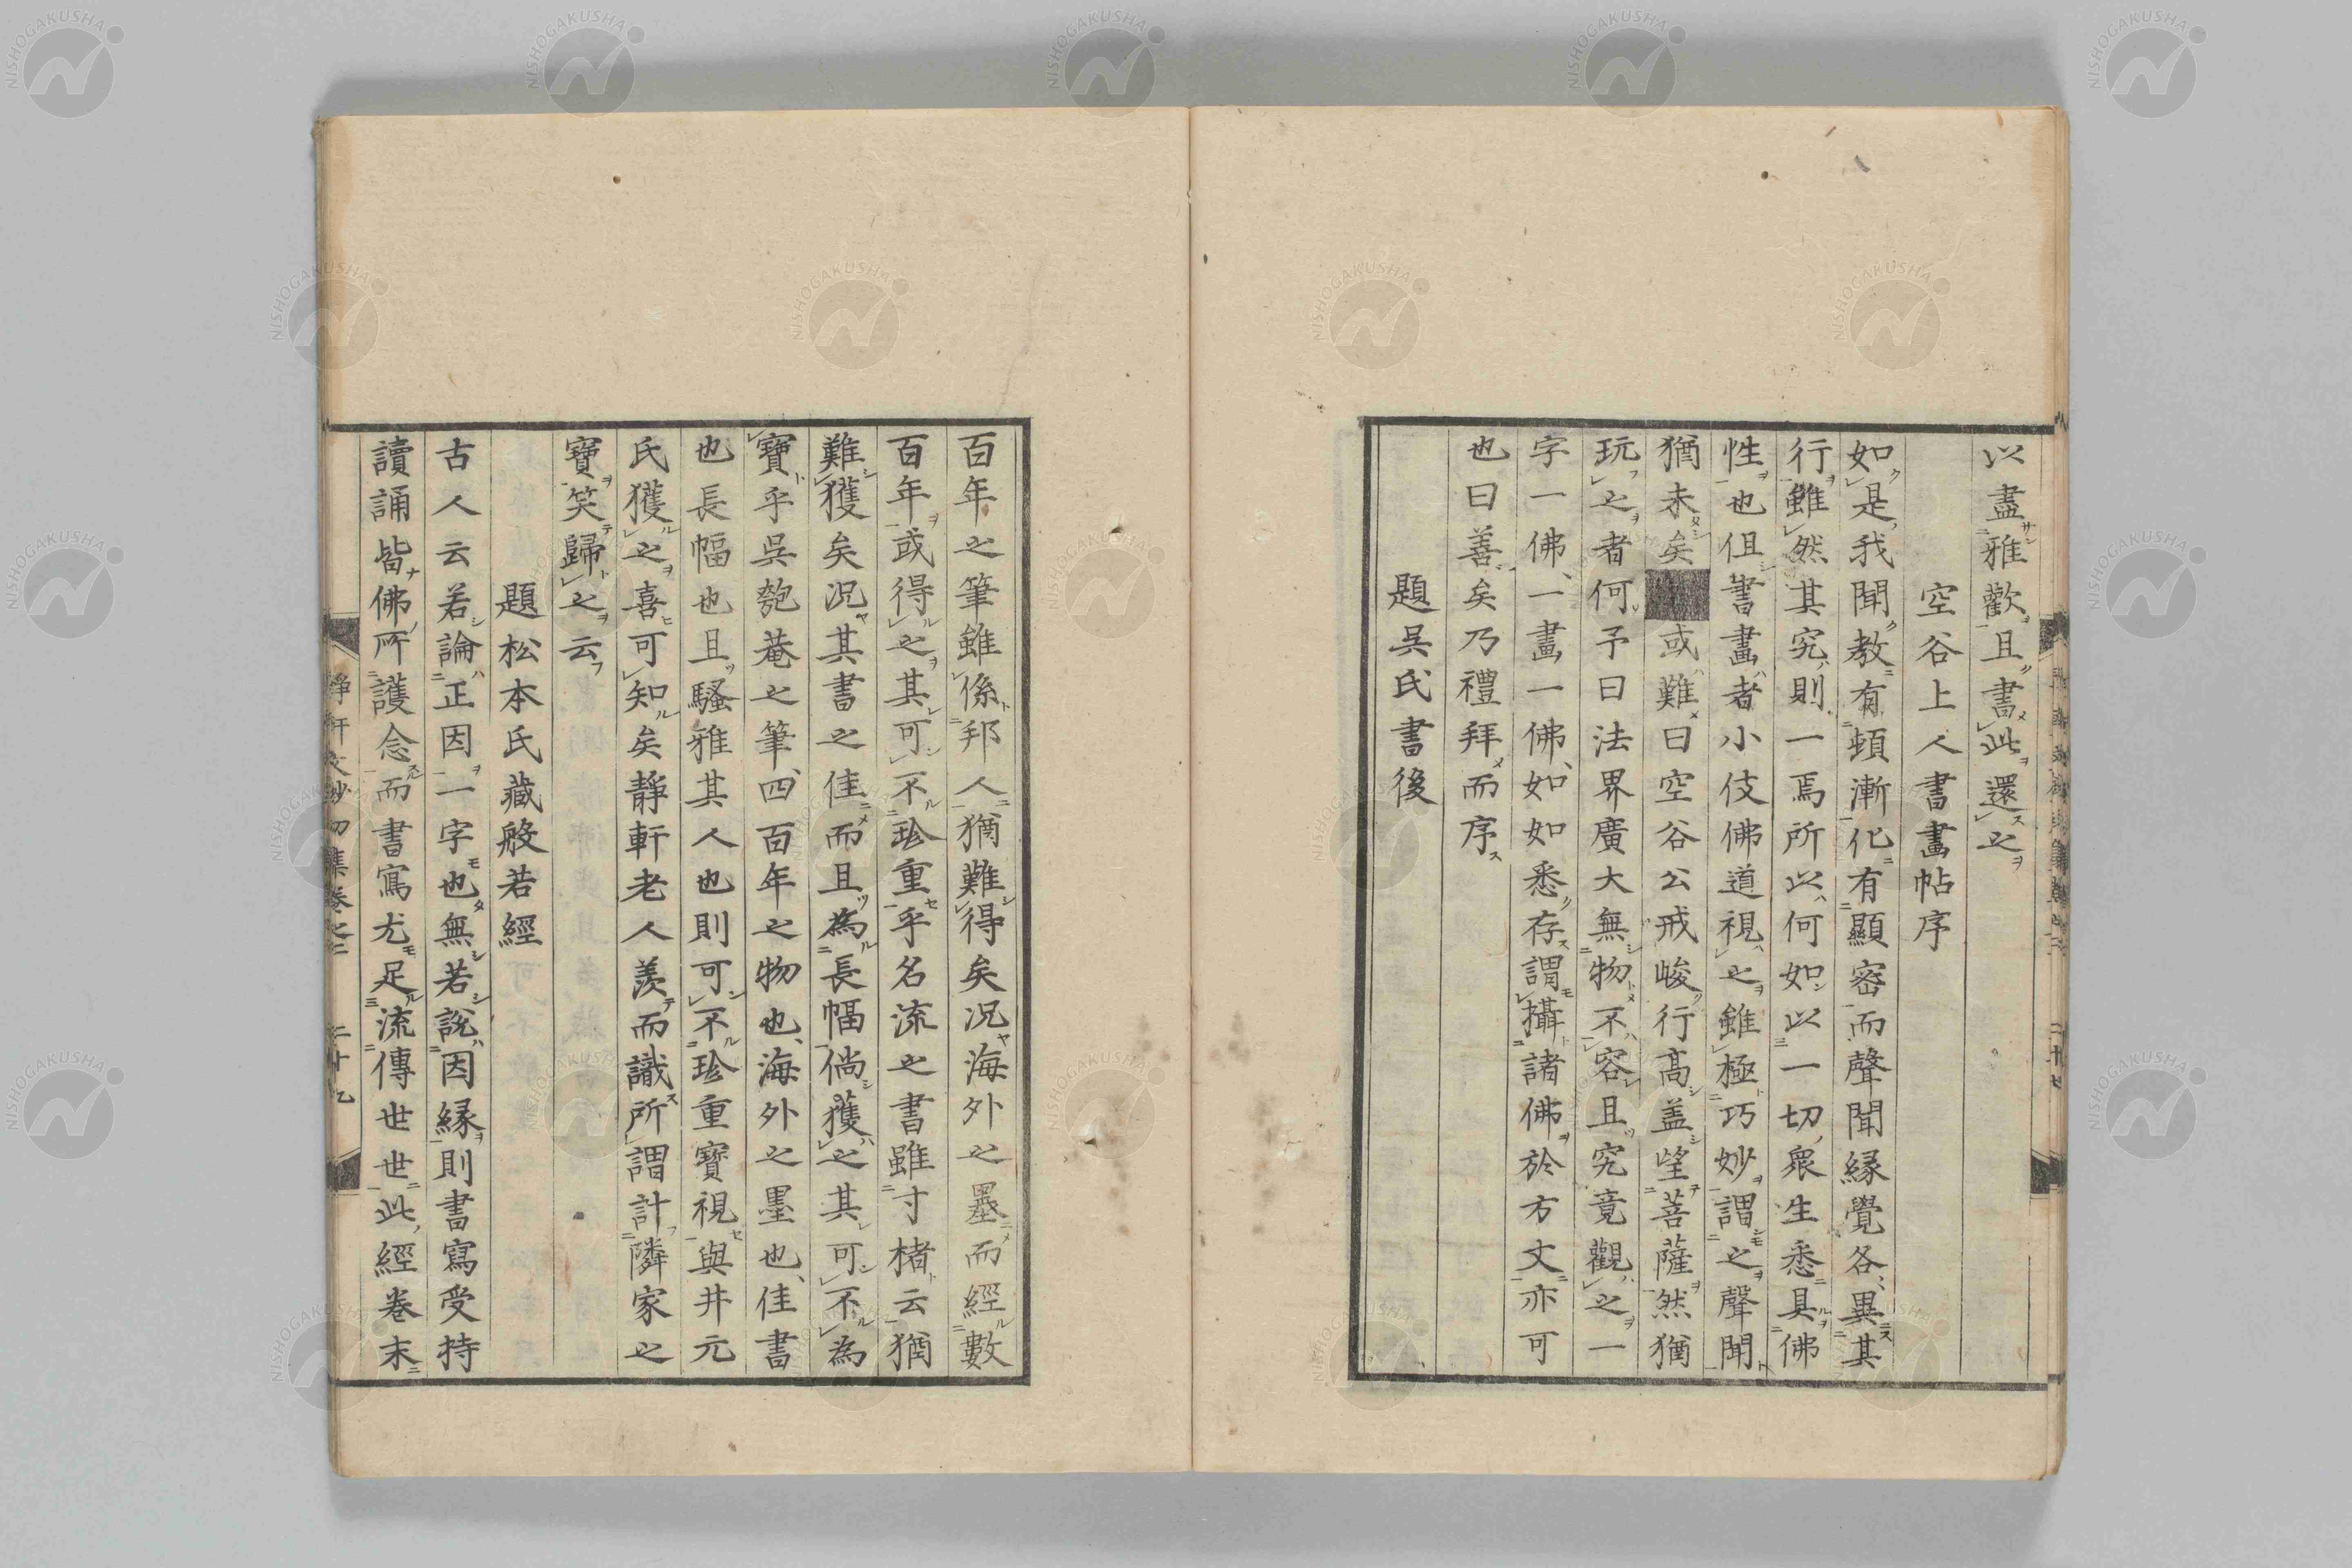 以盡雅歡且書此還之
空谷上人書畫帖序
如是我聞教有頓漸化有顯密而聲聞縁覺各異其
行雖然其究則一焉所以何如以一切衆生悉具佛
性也但書畫者小伎佛道視之雖極巧妙謂之聲聞
猶未矣或難曰空谷公戒峻行高盖望菩薩然猶
玩之者何予曰法界廣大無物不容且究竟觀之一
字一佛一畫一佛如如悉存謂攝諸佛於方丈亦可
也曰善矣乃禮拜而序
題吳氏書後
百年之筆雖係邦人猶難得矣況海外之墨而經數
百年或得之其可不珍重乎名流之書雖寸楮云猶
難獲矣況其書之佳而且為長幅倘獲之其可不為
寶乎吳匏菴之筆四百年之物也海外之墨也佳書
也長幅也且騷雅其人也則可不珍重寶視與井元
氏獲之喜可知矣靜軒老人羨而識所謂計隣家之
寶笑歸之云
題松本氏藏般若經
古人云若論正因一字也無若說因縁則書寫受持
讀誦皆佛所護念而書寫尤足流傳世世此經卷末
靜軒文鈔初集卷之二 二十九
NISHOGAKUSHA